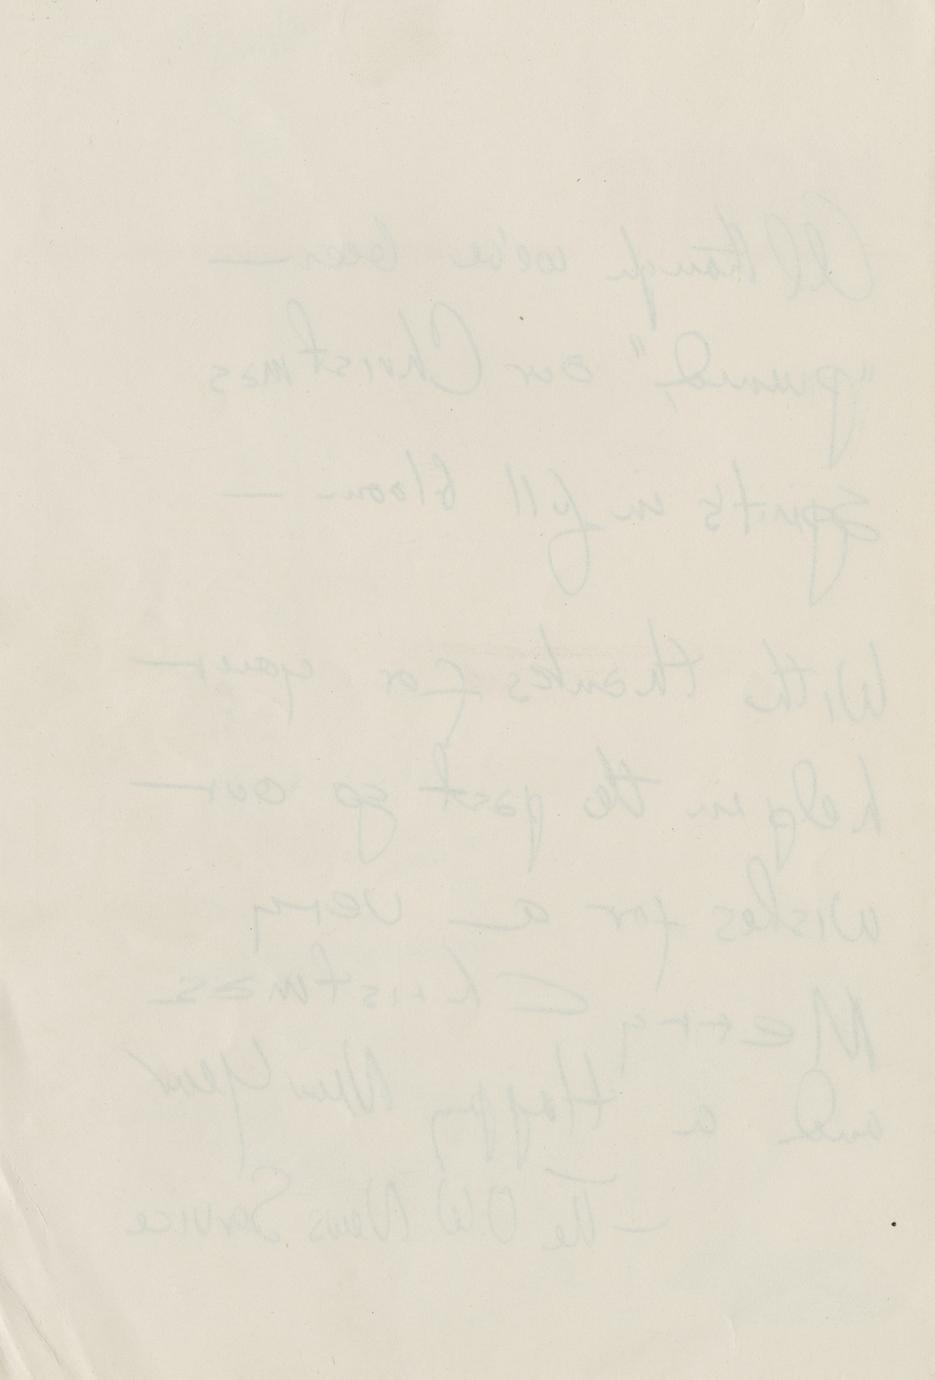 Although we've been —
"pruned," our Christmas
spirit's in full bloom —
With thanks for your
help in the past go our
wishes for a very
Merry Christmas
and a Happy New Year
— The OW News Service